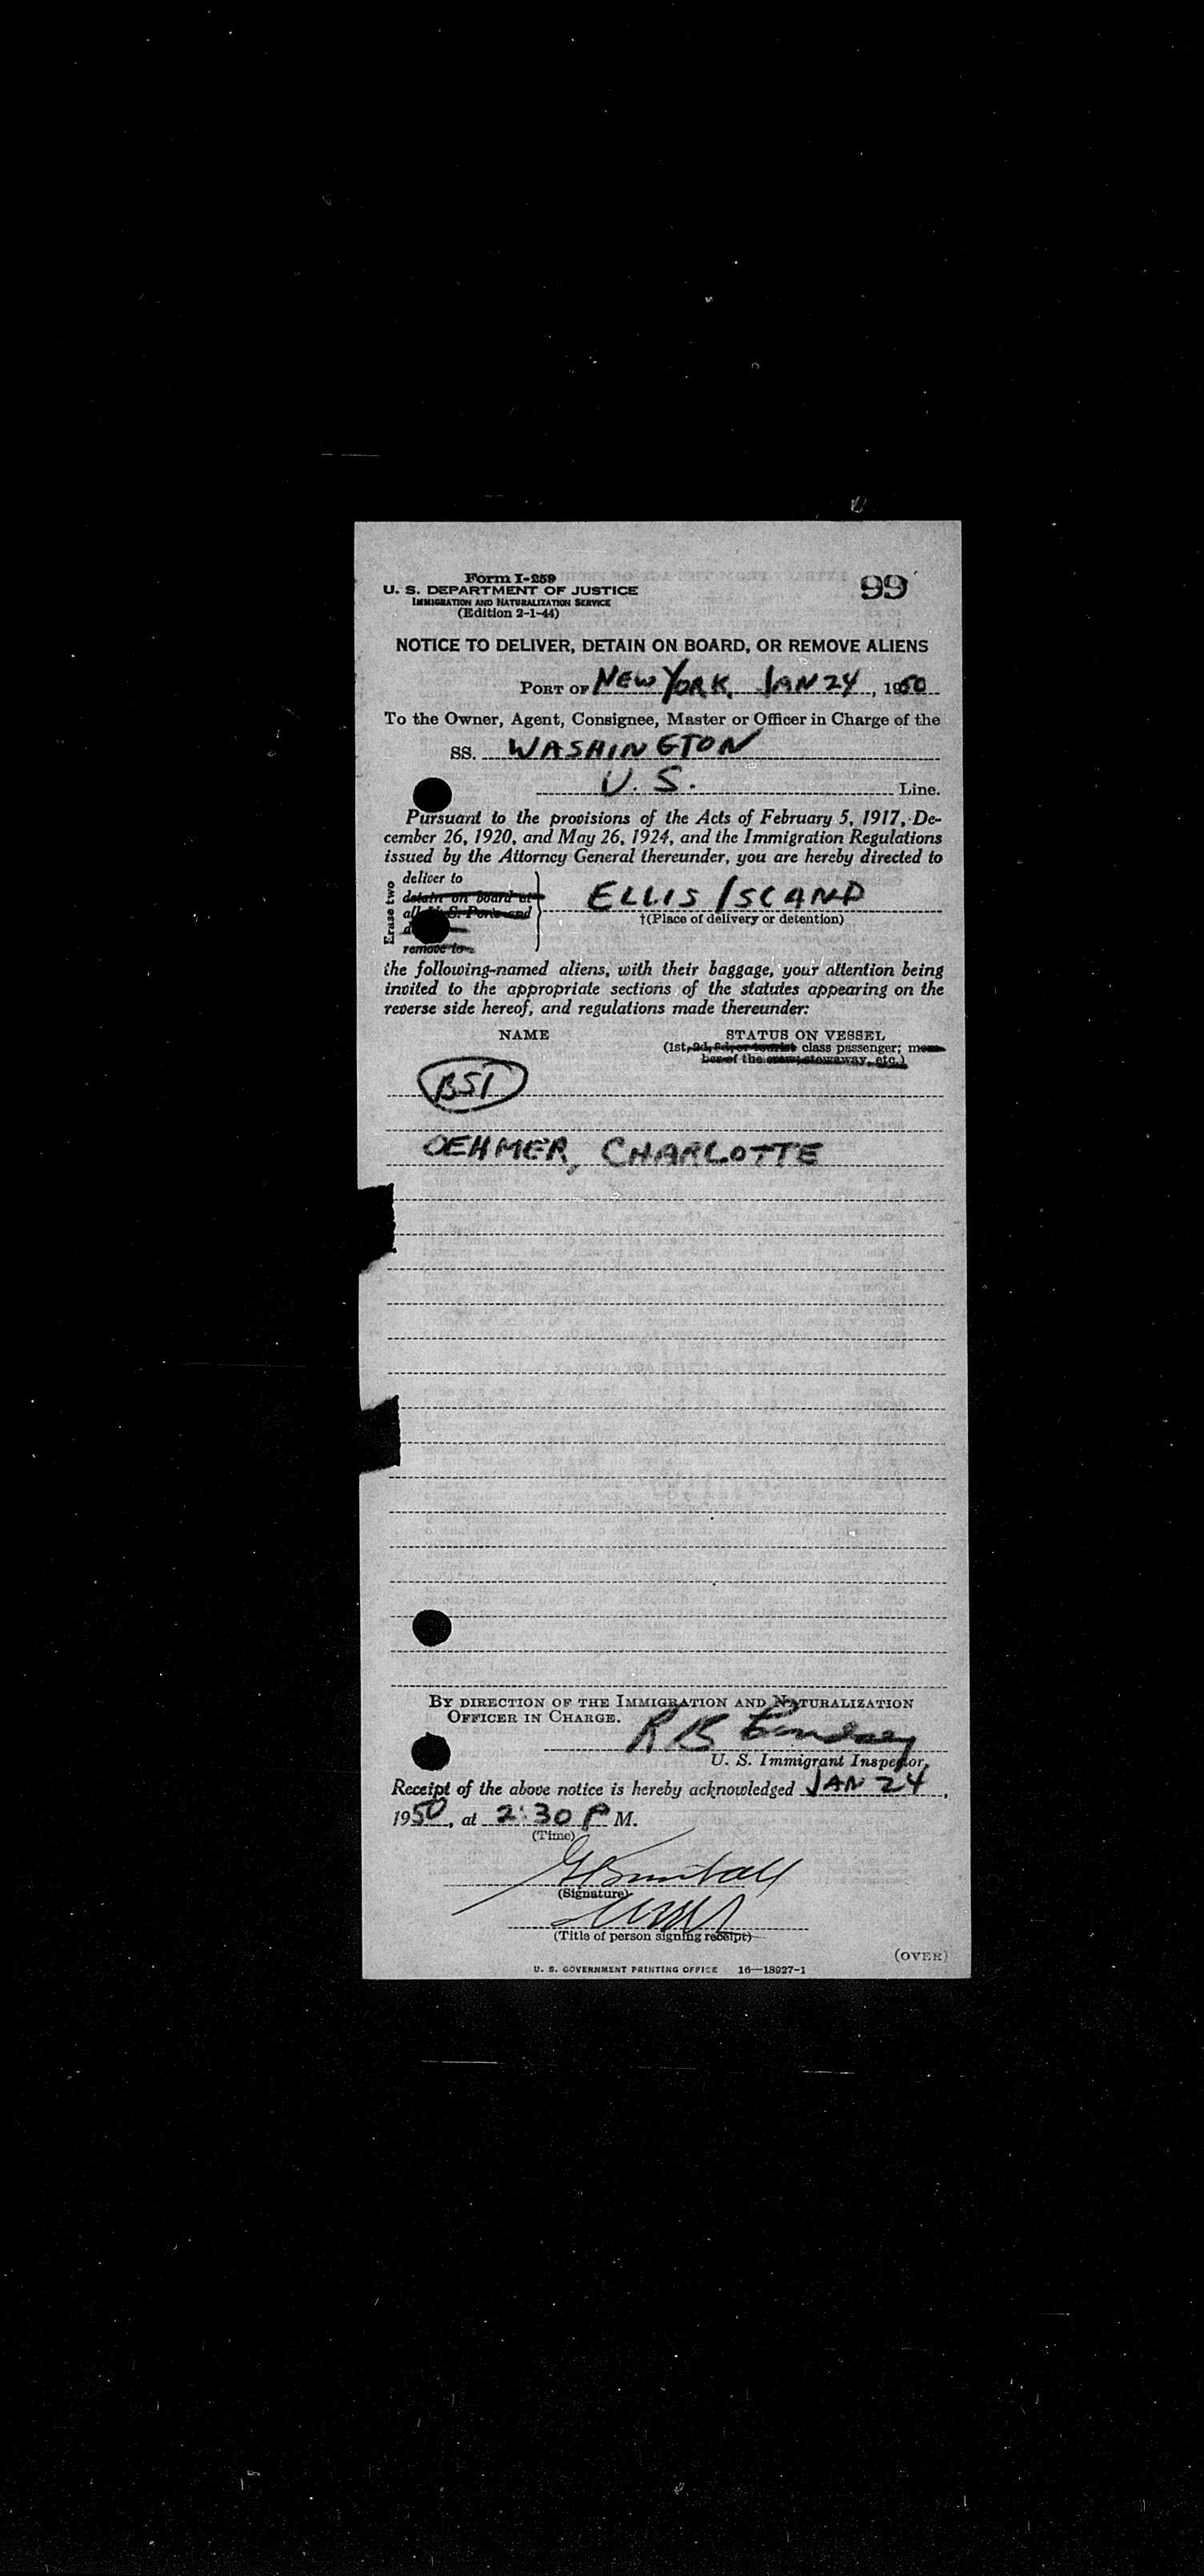 Form I-259
99
U. S. DEPARTMENT OF JUSTICE
IMMIGRATION AND NATURALIZATION SERVICE
(Edition 2-1-44)
NOTICE TO DELIVER, DETAIN ON BOARD, OR REMOVE ALIENS
PORT OF NEW YORK, JAN 24, 1950
To the Owner, Agent, Consignee, Master or Officer in Charge of the
SS. WASHINGTON
U. S. Line.
Pursuant to the provisions of the Acts of February 5, 1917, De-
cember 26, 1920, and May 26, 1924, and the Immigration Regulations
issued by the Attorney General thereunder, you are hereby directed to
Erase two
deliver to
detain on board at
all U. S. Ports and
remove to
ELLIS ISLAND
†(Place of delivery or detention)
the following-named aliens, with their baggage, your attention being
invited to the appropriate sections of the statutes appearing on the
reverse side hereof, and regulations made thereunder:
NAME STATUS ON VESSEL
(1st, 2d, 3d, or tourist class passenger; mem-
ber of the crew, stowaway, etc.)
BSI
OEHMER, CHARLOTTE
BY DIRECTION OF THE IMMIGRATION AND NATURALIZATION
OFFICER IN CHARGE.
R B Lindsey
U. S. Immigrant Inspector.
Receipt of the above notice is hereby acknowledged JAN 24,
1950, at 2:30 P M.
(Time)
(Signature)
(Title of person signing receipt)
(OVER)
U. S. GOVERNMENT PRINTING OFFICE 16—18927-1